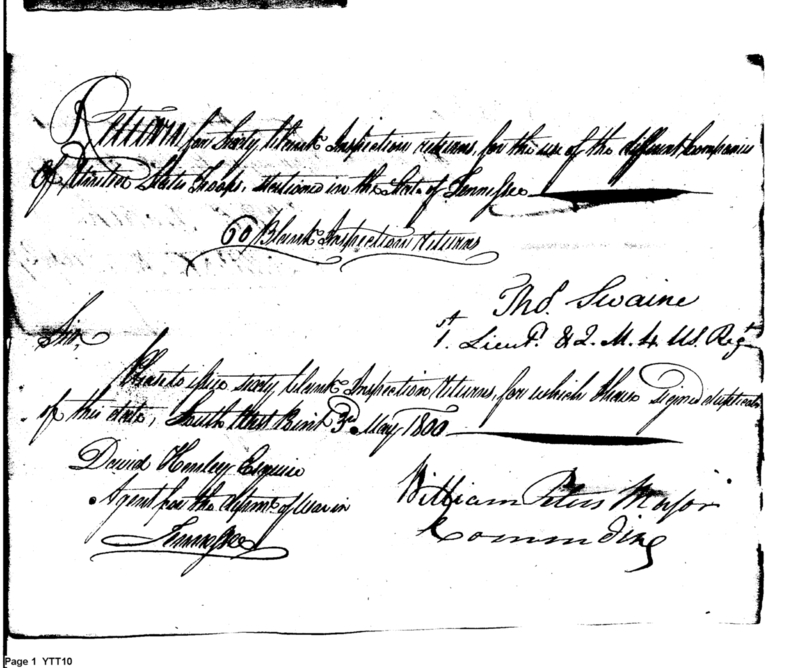 Return for Sixty blank Inspection returns, for the use of the different Companies
of United States Troops, stationed in the State of Tennessee
60 Blank Inspection Returns
Tho.s Swaine
1.st Lieut. & Q. M. 4 US Regt
Sir,
Please to issue sixty blank Inspection returns, for which I have Signed duplicates
of this date, South West Point 3.d May 1800
David Henley Esquire
Agent for the departmt of War in
Tennessee
William Peters Major
Commanding
Page 1 YTT10